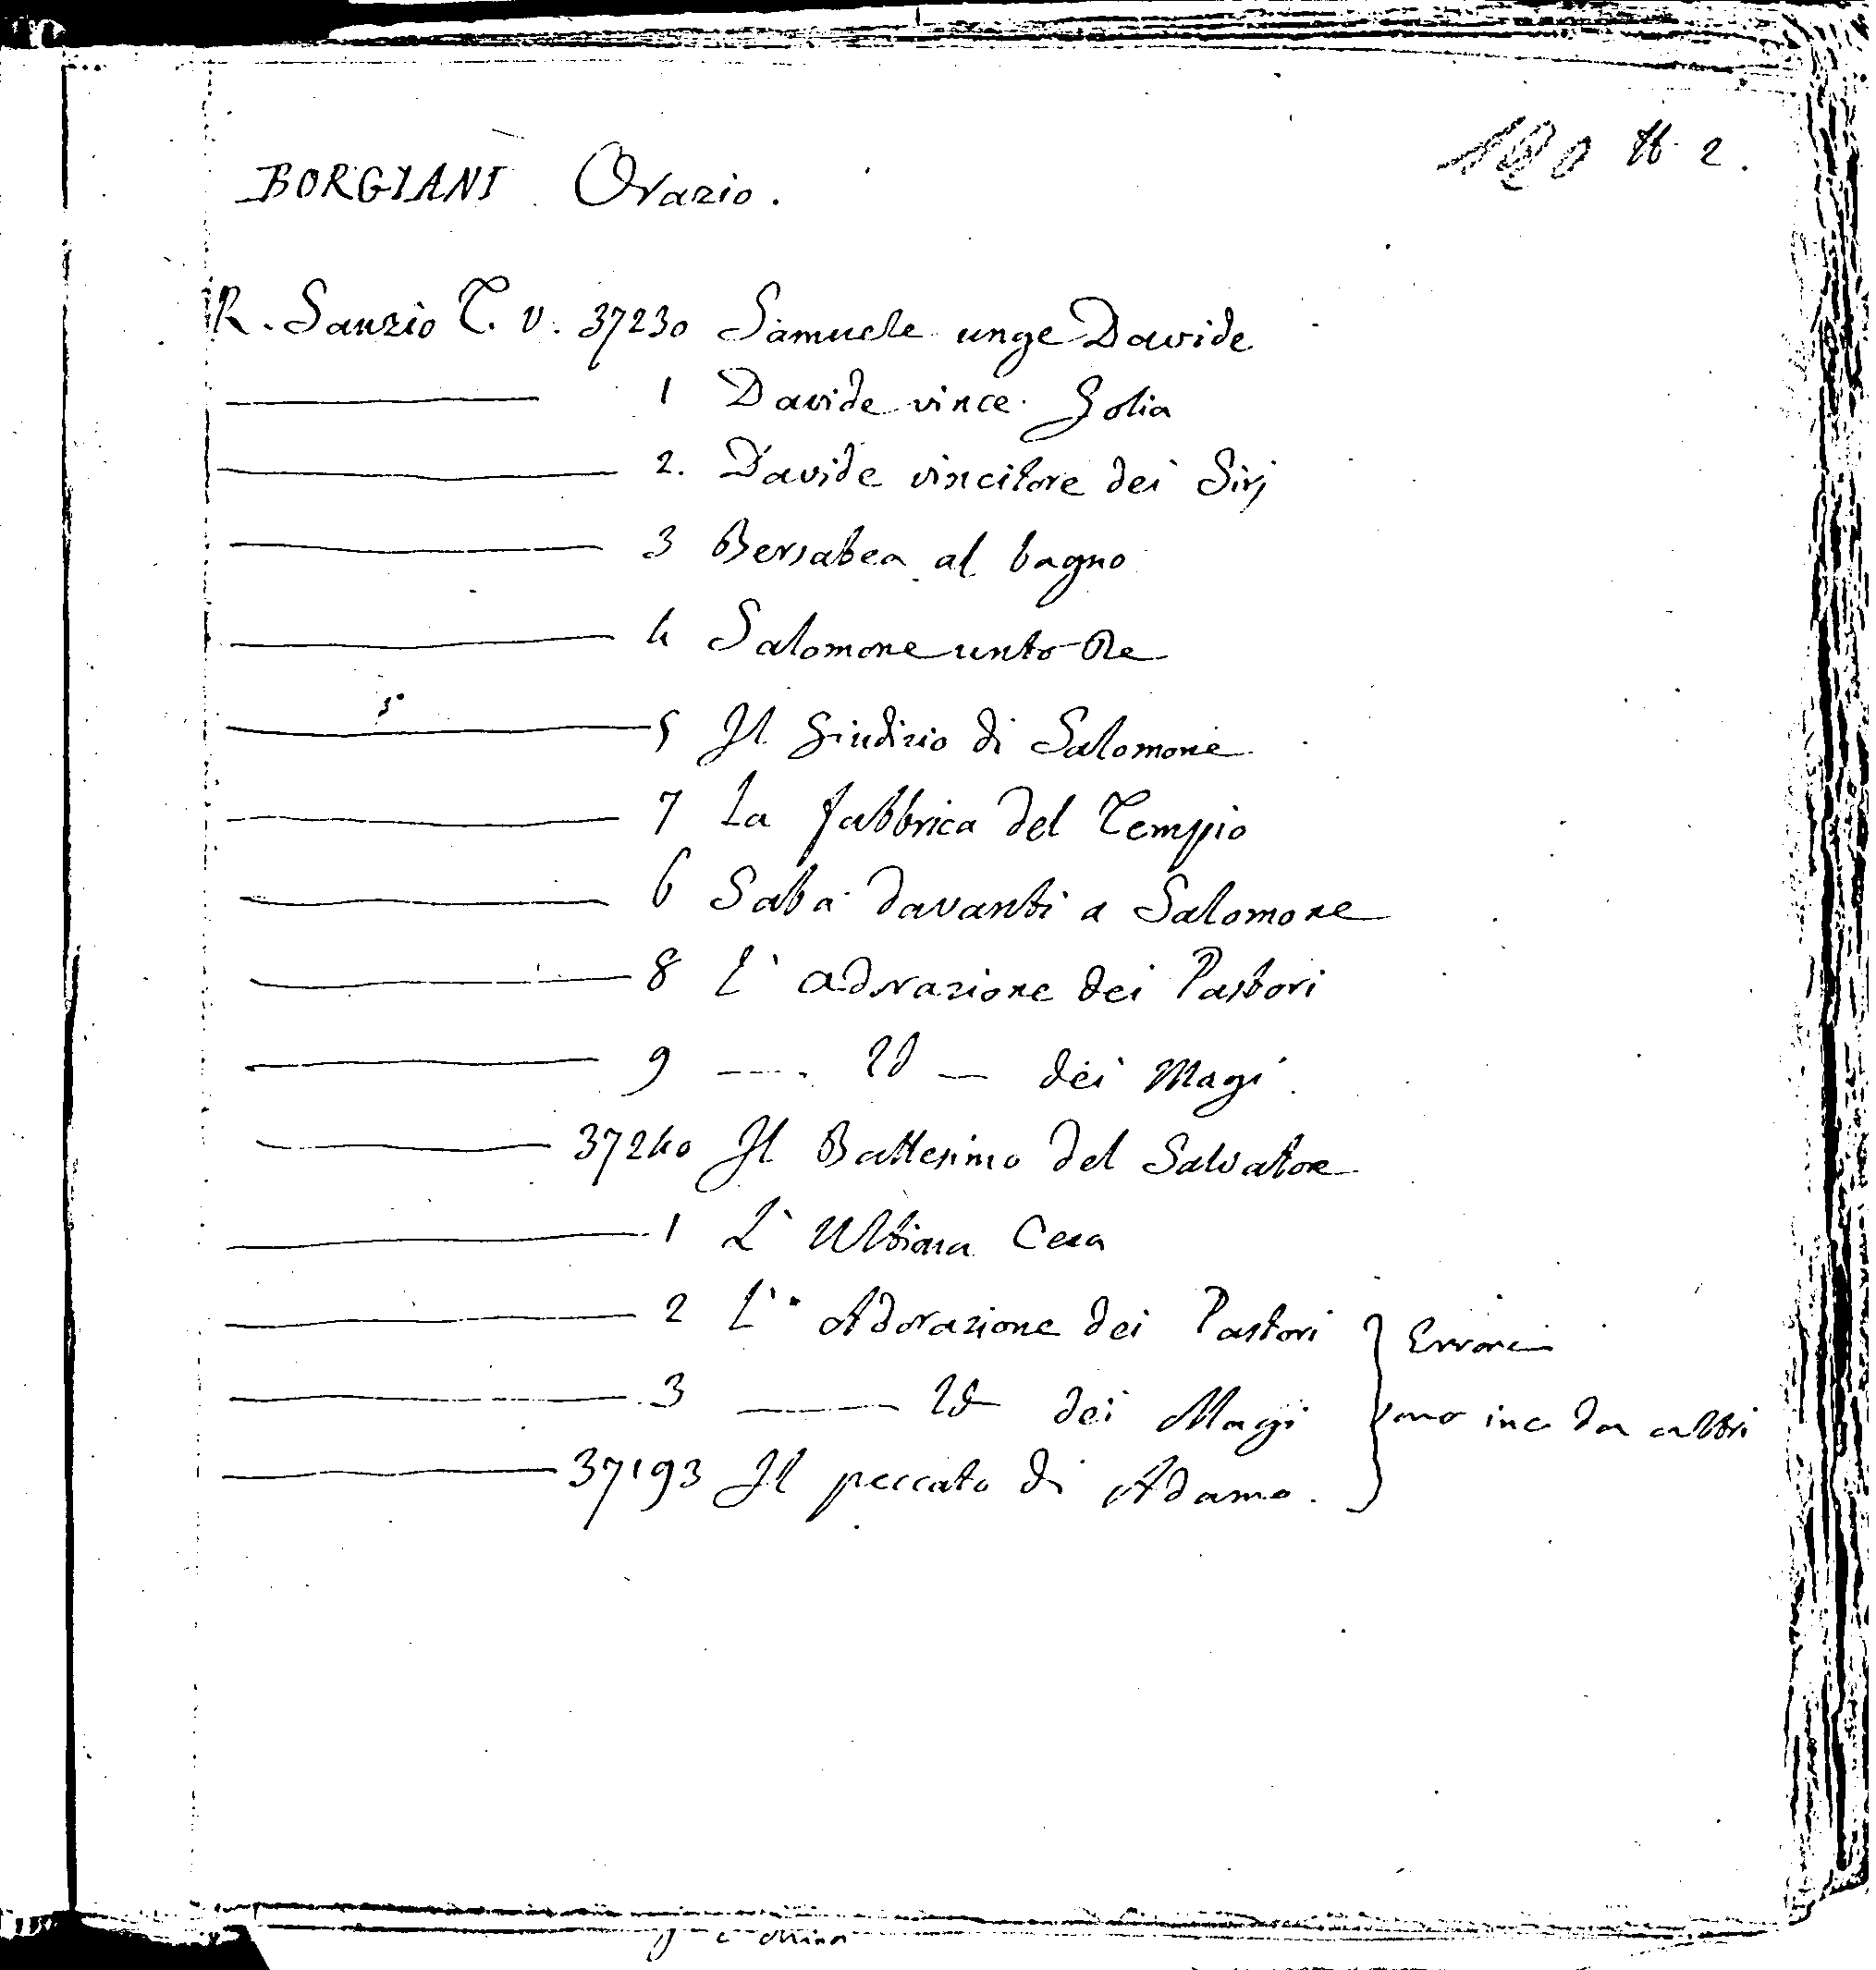 BORGIANI Orazio.
R. Sanzio T. V. 37230 Samuele unge Davide
1 Davide vince Golia
2. Davide vincitore dei Sirj
3 Bersabea al bagno
4 Salomone unto Re
5 Il Giudizio di Salomone
7 La fabbrica del Tempio
6 Saba davanti a Salomone
8 L' adorazione dei Pastori
9 — Id — dei Magi
37240 Il Battesimo del Salvatore
1 L' Ultima Cena
2 L' Adorazione dei Pastori } Errore
3 — Id dei Magi sono inc da altri
37193 Il peccato di Adamo.